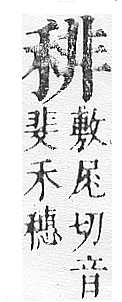 䅐
敷尾切音
斐禾穗